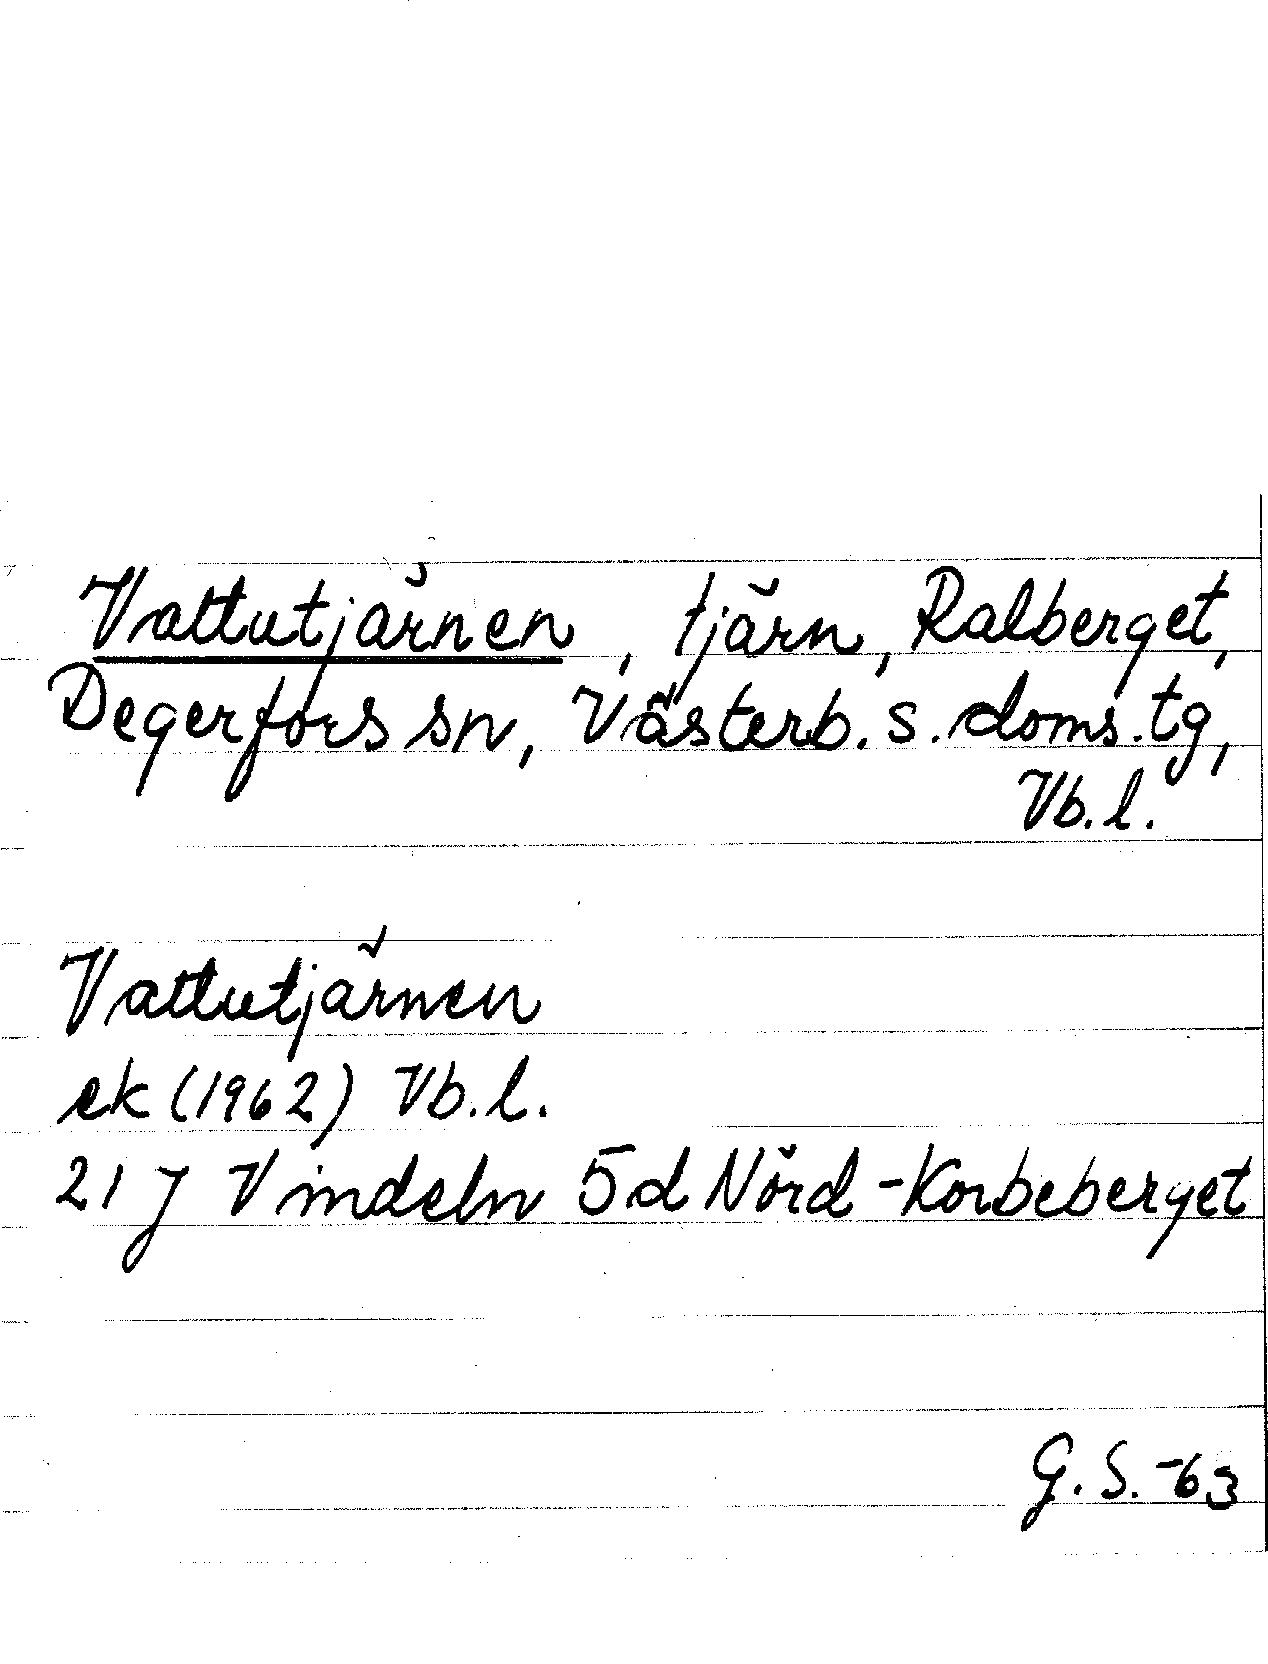 Vattutjärnen, tjärn, Ralberget,
Degerfors sn, Västerb. s. doms. tg,
Vb. l.
Vattutjärnen
ek (1962) Vb. l.
21 J Vindeln 5d Nörd-Korbeberget
G. S. -63